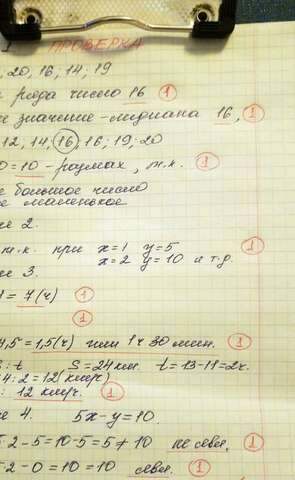 ПРОВЕРКА
, 20, 16; 14; 19
ряда число 16 1
е значение-медиана 16, 1
12, 14, 16, 16; 19; 20
0 = 10 - размах, т.к. 1
е большое число
е маленькое
ие 2.
т.к. при x=1 y=5 1
x=2 y=10 и т.д.
ие 3.
1 = 7(ч) 1
1
4,5 = 1,5(ч) или 1ч 30 мин. 1
: t S = 24 км. t = 13-11=2ч.
4:2 = 12 (км/ч)
: 12 км/ч. 1
ие 4. 5x-y=10.
·2-5=10-5=5≠10 не явл. 1
·2-0=10=10 явл. 1